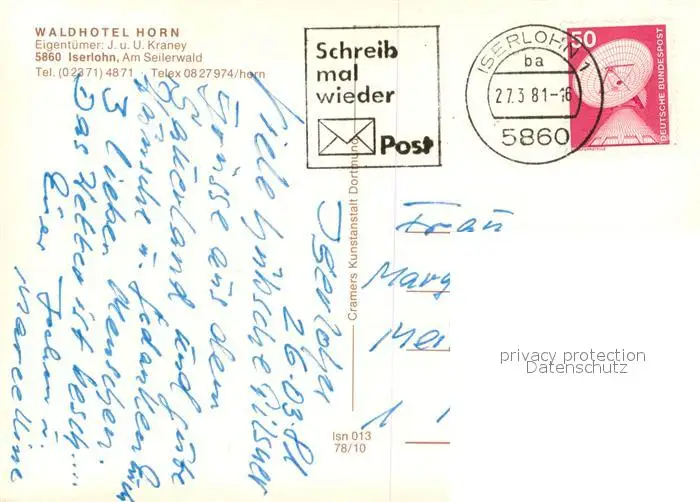 WALDHOTEL HORN
Eigentümer: J. u. U. Kraney
5860 Iserlohn, Am Seilerwald
Tel. (02371) 4871 · Telex 0827974/horn
Schreib
mal
wieder
Post
ISERLOHN 1
ba
27.3 81-16
5860
50
DEUTSCHE BUNDESPOST
Iserlohn
26.03.81
Viele hübsche
Grüsse aus dem
Sauerland und gute
Wünsche u. Gedanken
3 lieben Menschen.
Das Wetter ist besch....
Eure Jochen u.
Marcelline
Cramers Kunstanstalt Dortmund
Isn 013
78/10
Frau
privacy protection
Datenschutz